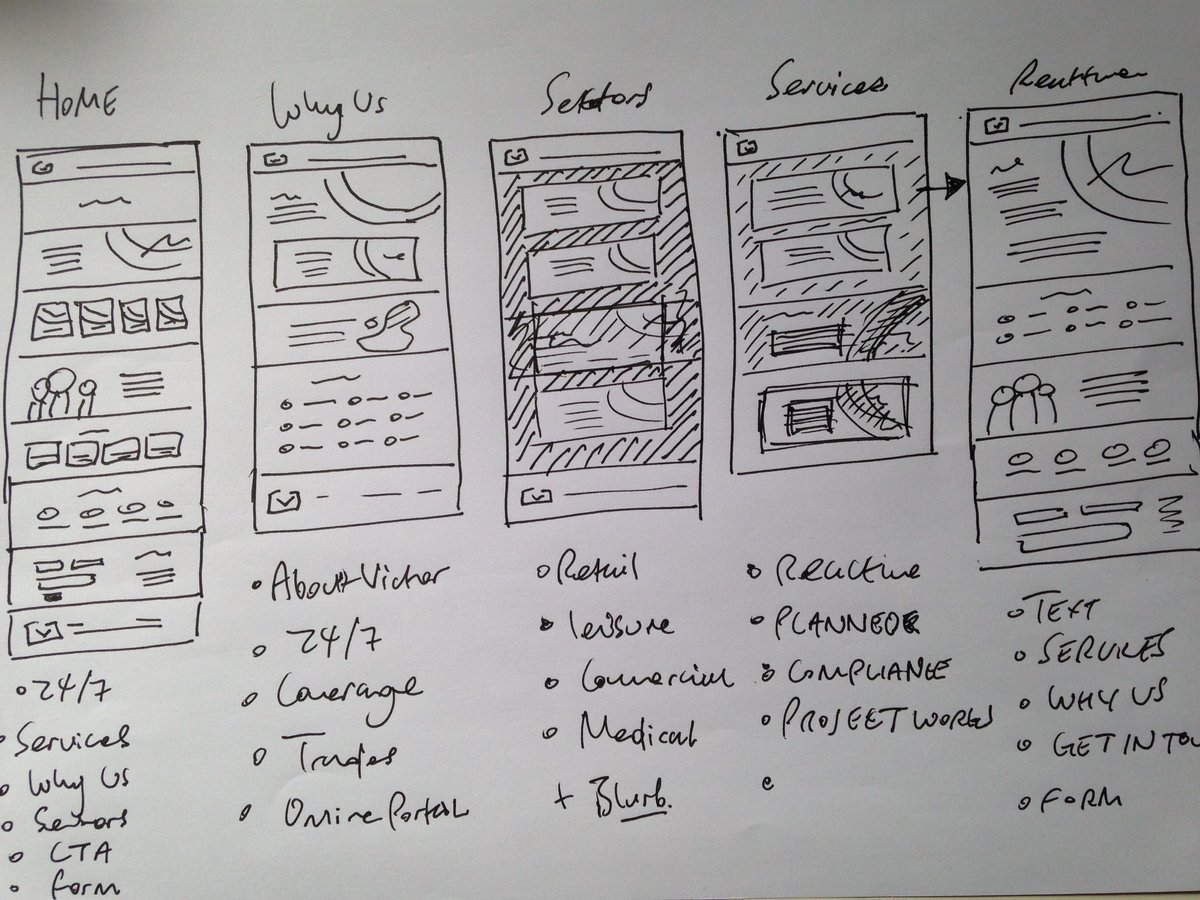 HOME
Why Us
Sectors
Services
Reactive
24/7
Services
Why Us
Sectors
CTA
form
About Victor
24/7
Coverage
Trades
Online Portal
Retail
leisure
Commercial
Medical
+ Blurb.
Reactive
PLANNED
COMPLIANCE
PROJECT WORKS
TEXT
SERVICES
WHY US
GET IN TOU
FORM